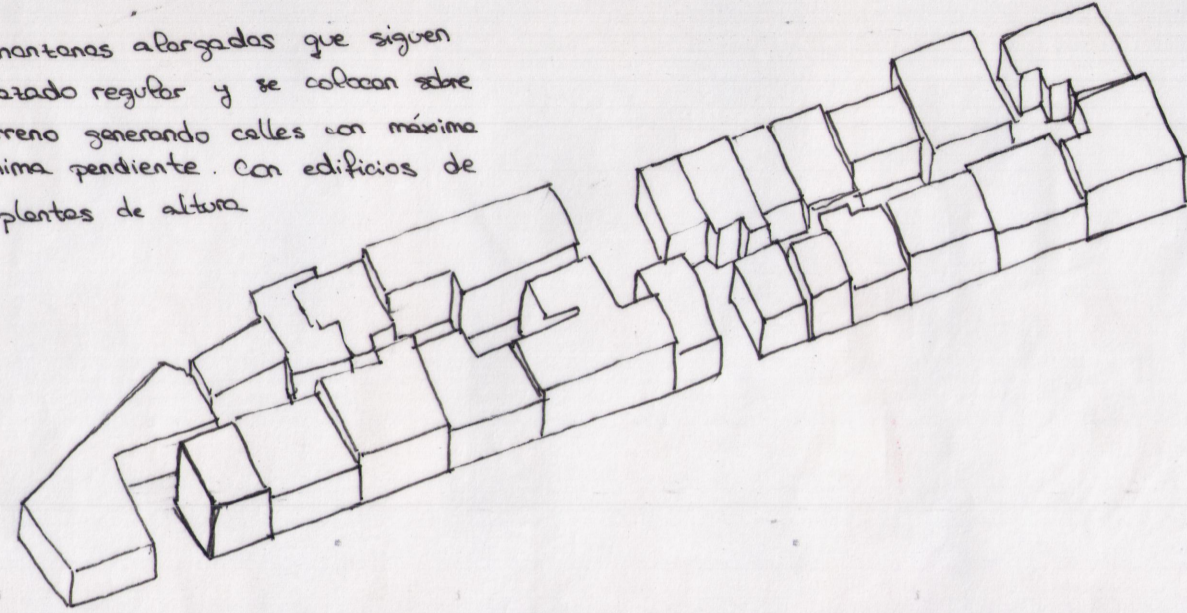 manzanas alargadas que siguen
azado regular y se colocan sobre
rreno generando calles con máxima
nima pendiente. Con edificios de
plantas de altura